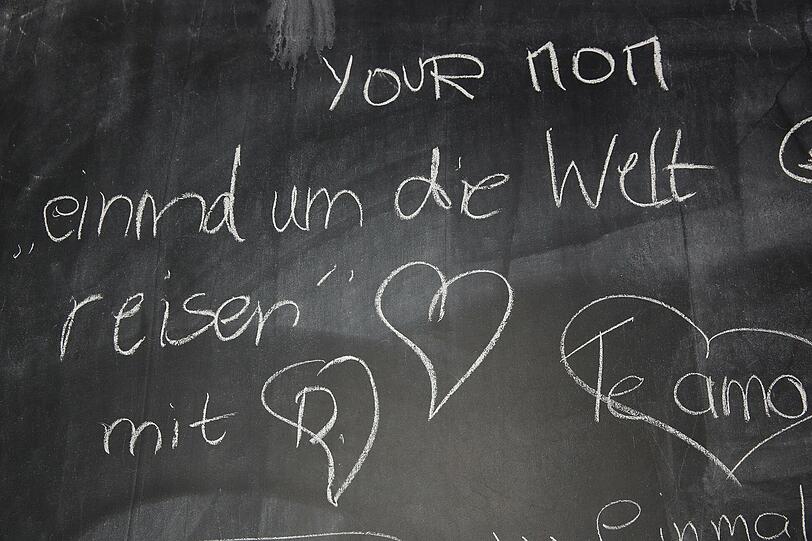 YOUR MOM
„einmal um die Welt
reisen"
mit R.
Te amo
einmal